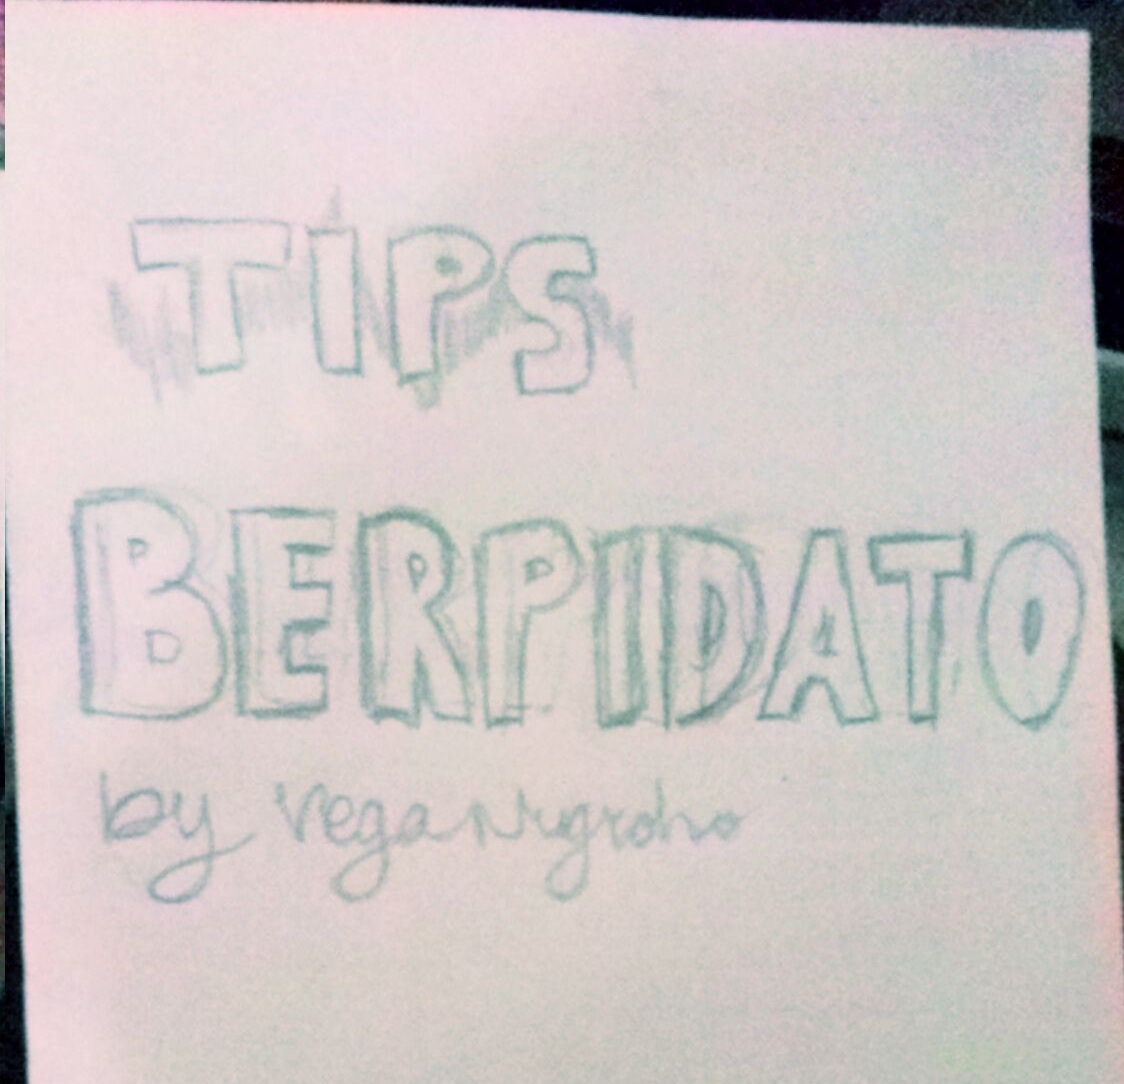 TIPS
BERPIDATO
by Vega Nugroho